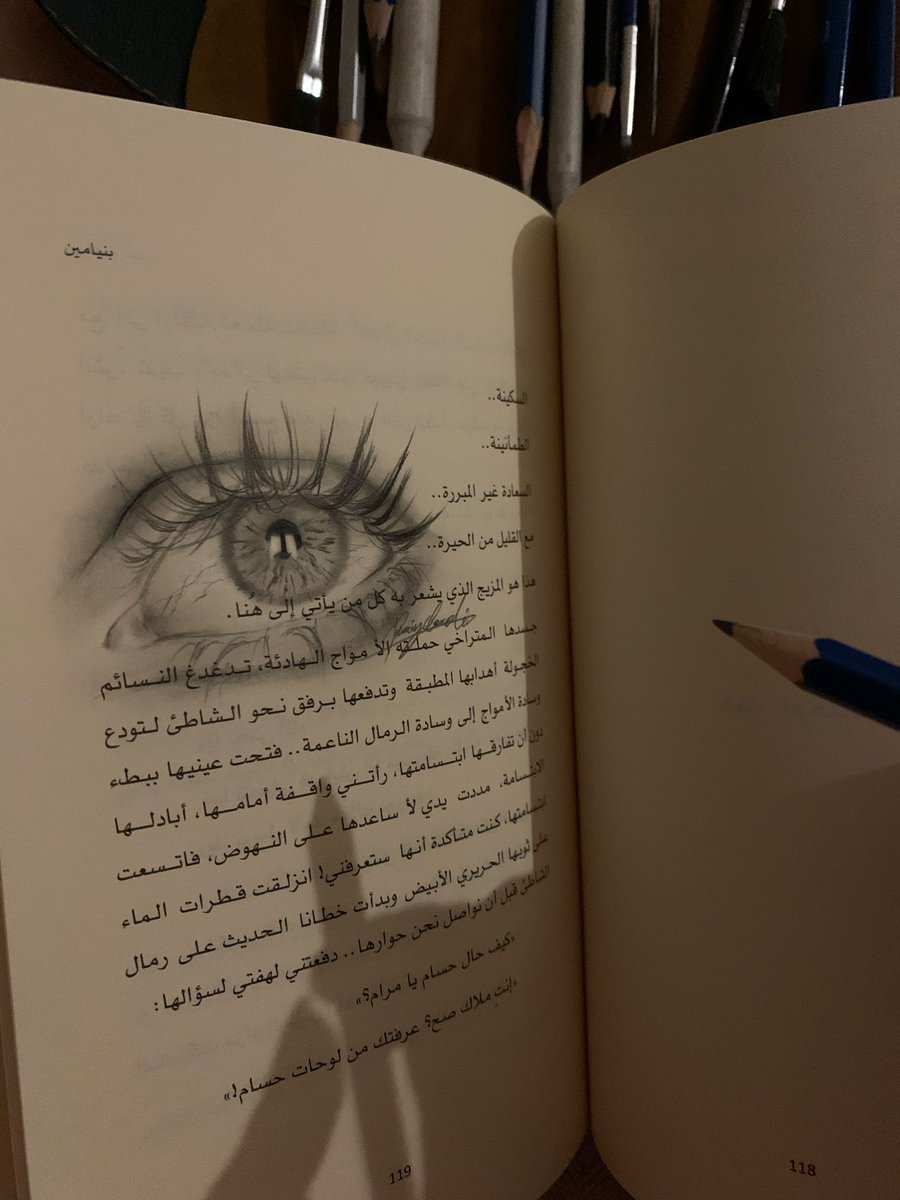 بنيامين
السكينة..
الطمأنينة..
السعادة غير المبررة..
مع القليل من الحيرة..
هذا هو المزيج الذي يشعر به كل من يأتي إلى هُنا.
جسدها المتراخي حملته الأمواج الهادئة، تدغدغ النسائم
الخجولة أهدابها المطبقة وتدفعها برفق نحو الشاطئ لتودع
وسادة الأمواج إلى وسادة الرمال الناعمة.. فتحت عينيها ببطء
دون أن تفارقها ابتسامتها، رأتني واقفة أمامها، أبادلها
الابتسامة، مددت يدي لأساعدها على النهوض، فاتسعت
ابتسامتها، كنت متأكدة أنها ستعرفني! انزلقت قطرات الماء
على ثوبها الحريري الأبيض وبدأت خطانا الحديث على رمال
الشاطئ قبل أن نواصل نحن حوارها.. دفعتني لهفتي لسؤالها:
«كيف حال حسام يا مرام؟»
«إنتِ ملاك صح؟ عرفتك من لوحات حسام!»
119
118